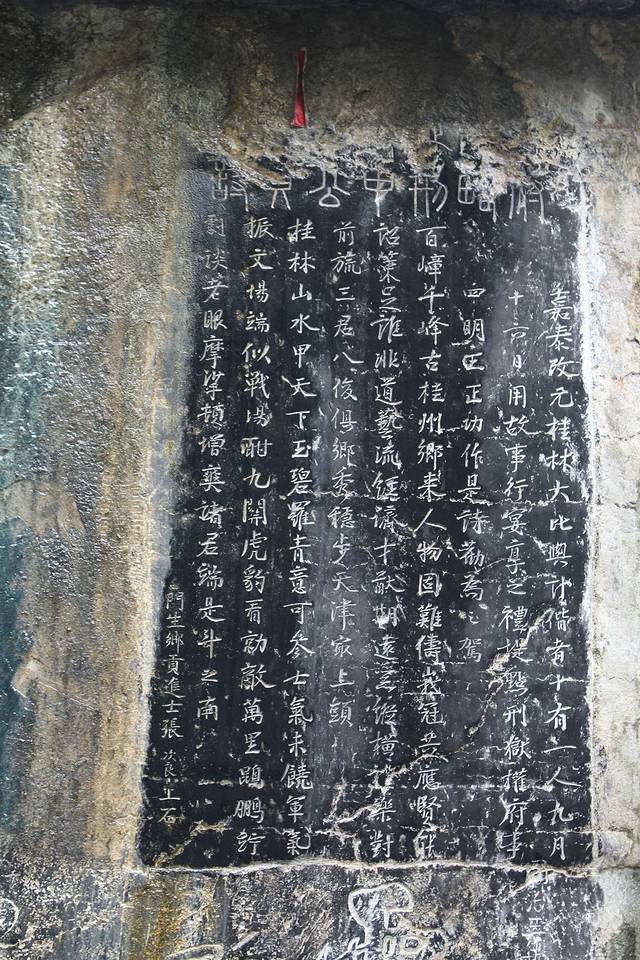 嘉泰改元桂林大比與計偕者十有一人九月
十六日用故事行宴享之禮提點刑獄權府事
四明王正功作是詩勸為之駕
百嶂千峰古桂州鄉來人物固難儔峩冠共應賢能
詔策足誰非道藝流經濟才猷期遠器縱橫禮樂對
前旒三君八俊俱鄉秀穩步天津最上頭
桂林山水甲天下玉碧羅青意可參士氣未饒軍氣
振文場端似戰場酣九關虎豹看勍敵萬里鵾鵬佇
劇談老眼摩挲頓增爽諸君端是斗之南
門生鄉貢進士張次良上石